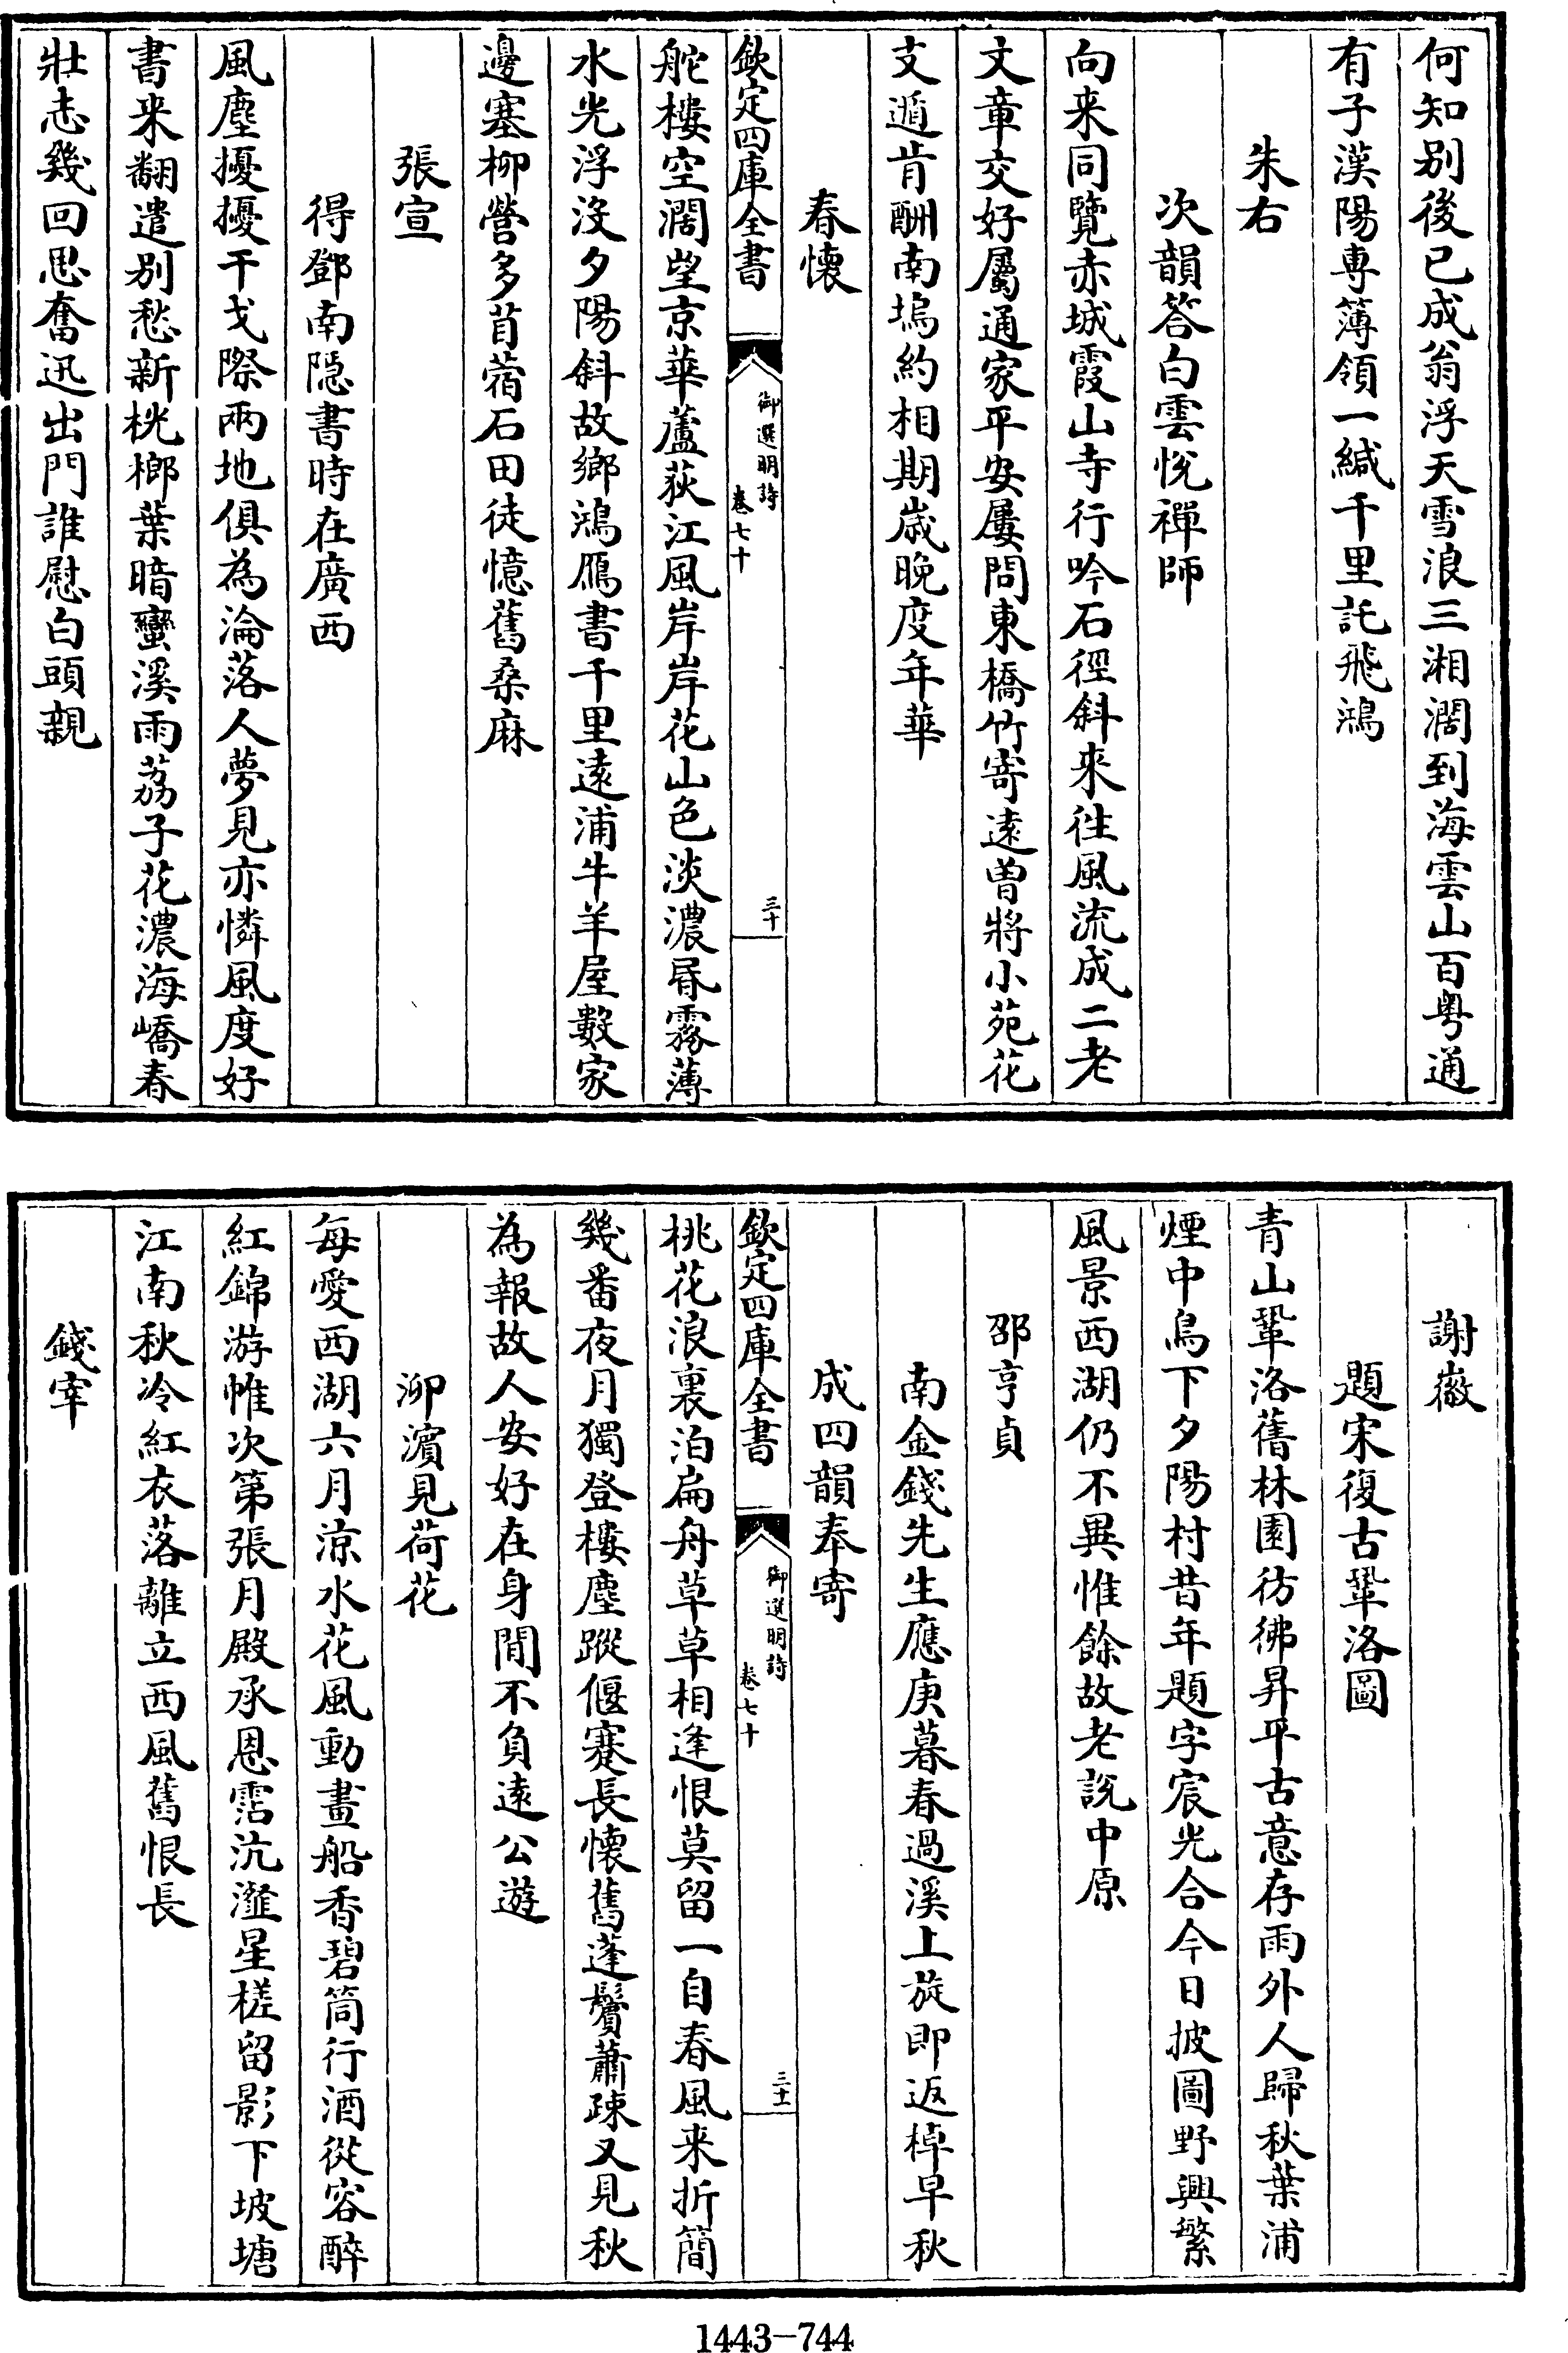 何知别後已成翁浮天雪浪三湘濶到海雲山百粤通
有子漢陽専薄領一緘千里託飛鴻
朱右
次韻答白雲悦禪師
向来同覽赤城霞山寺行吟石徑斜来往風流成二老
文章交好屬通家平安屢問東橋竹寄逺曽將小苑花
支遁肯酬南塢約相期嵗晚度年華
春懐
欽定四庫全書
御選明詩
卷七十
三十
舵樓空濶望京華蘆荻江風岸岸花山色淡濃昬霧薄
水光浮没夕陽斜故鄉鴻鴈書千里逺浦牛羊屋數家
邊塞柳營多苜蓿石田徒憶舊桑麻
張宣
得鄧南隠書時在廣西
風塵擾擾干戈際兩地俱為淪落人夢見亦憐風度好
書来翻遣别愁新桄榔葉暗蠻溪雨荔子花濃海嶠春
壯志幾回思奮迅出門誰慰白頭親
謝徽
題宋復古鞏洛圖
青山鞏洛舊林園彷彿昇平古意存雨外人歸秋葉浦
煙中鳥下夕陽村昔年題字宸光合今日披圖野興繁
風景西湖仍不異惟餘故老說中原
邵亨貞
南金錢先生應庚暮春過溪上旋即返棹早秋
成四韻奉寄
欽定四庫全書
御選明詩
卷七十
三十一
桃花浪裏泊扁舟草草相逢恨莫留一自春風来折簡
幾番夜月獨登樓塵蹤偃蹇長懐舊蓬鬢蕭疎又見秋
為報故人安好在身閒不負逺公遊
泖濵見荷花
每愛西湖六月涼水花風動畫船香碧筒行酒從容醉
紅錦游帷次第張月殿承恩霑沆瀣星槎留影下坡塘
江南秋冷紅衣落離立西風舊恨長
錢宰
1443-744